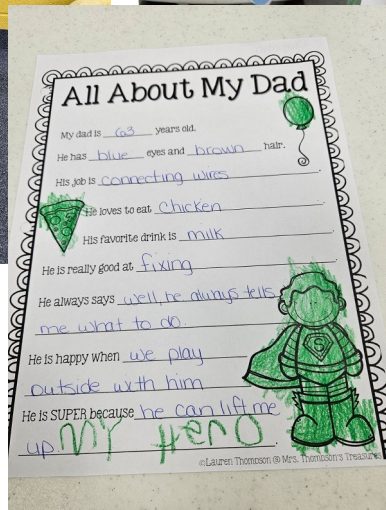 All About My Dad
My dad is 63 years old.
He has blue eyes and brown hair.
His job is connecting wires.
He loves to eat chicken.
His favorite drink is milk.
He is really good at fixing.
He always says well, he always tells
me what to do.
He is happy when we play
outside with him
He is SUPER because he can lift me
up. My HerO.
S
©Lauren Thompson @ Mrs. Thompson's Treasures